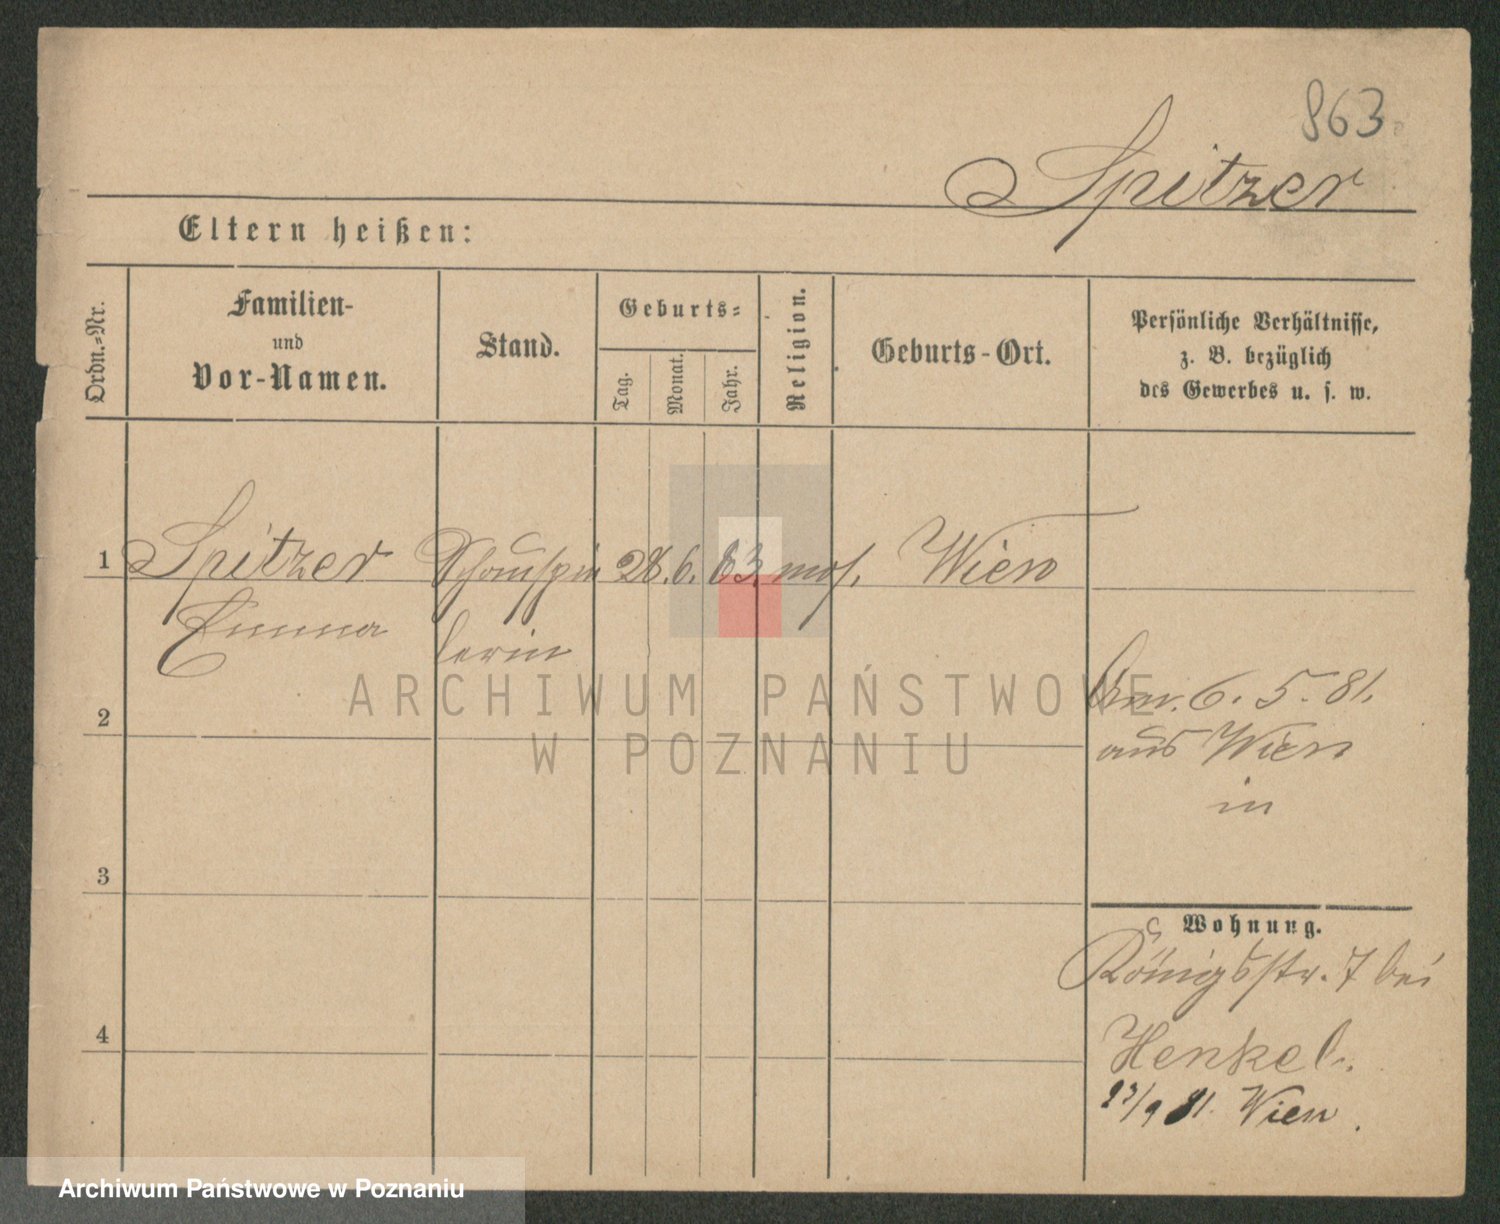 863.
Spitzer
Eltern heißen:
Ordn.-Nr.
Familien-
und
Vor-Namen.
Stand.
Geburts-
Tag.
Monat.
Jahr.
Religion.
Geburts-Ort.
Persönliche Verhältnisse,
z. B. bezüglich
des Gewerbes u. s. w.
1 Spitzer Schauspie 28. 6. 63. mos. Wien
Emma lerin
ARCHIWUM PAŃSTWOWE
W POZNANIU
2
6. 5. 81.
aus Wien
in
3
Wohnung.
Königsstr. 7 bei
Henkel.
4
23/9 81. Wien.
Archiwum Państwowe w Poznaniu